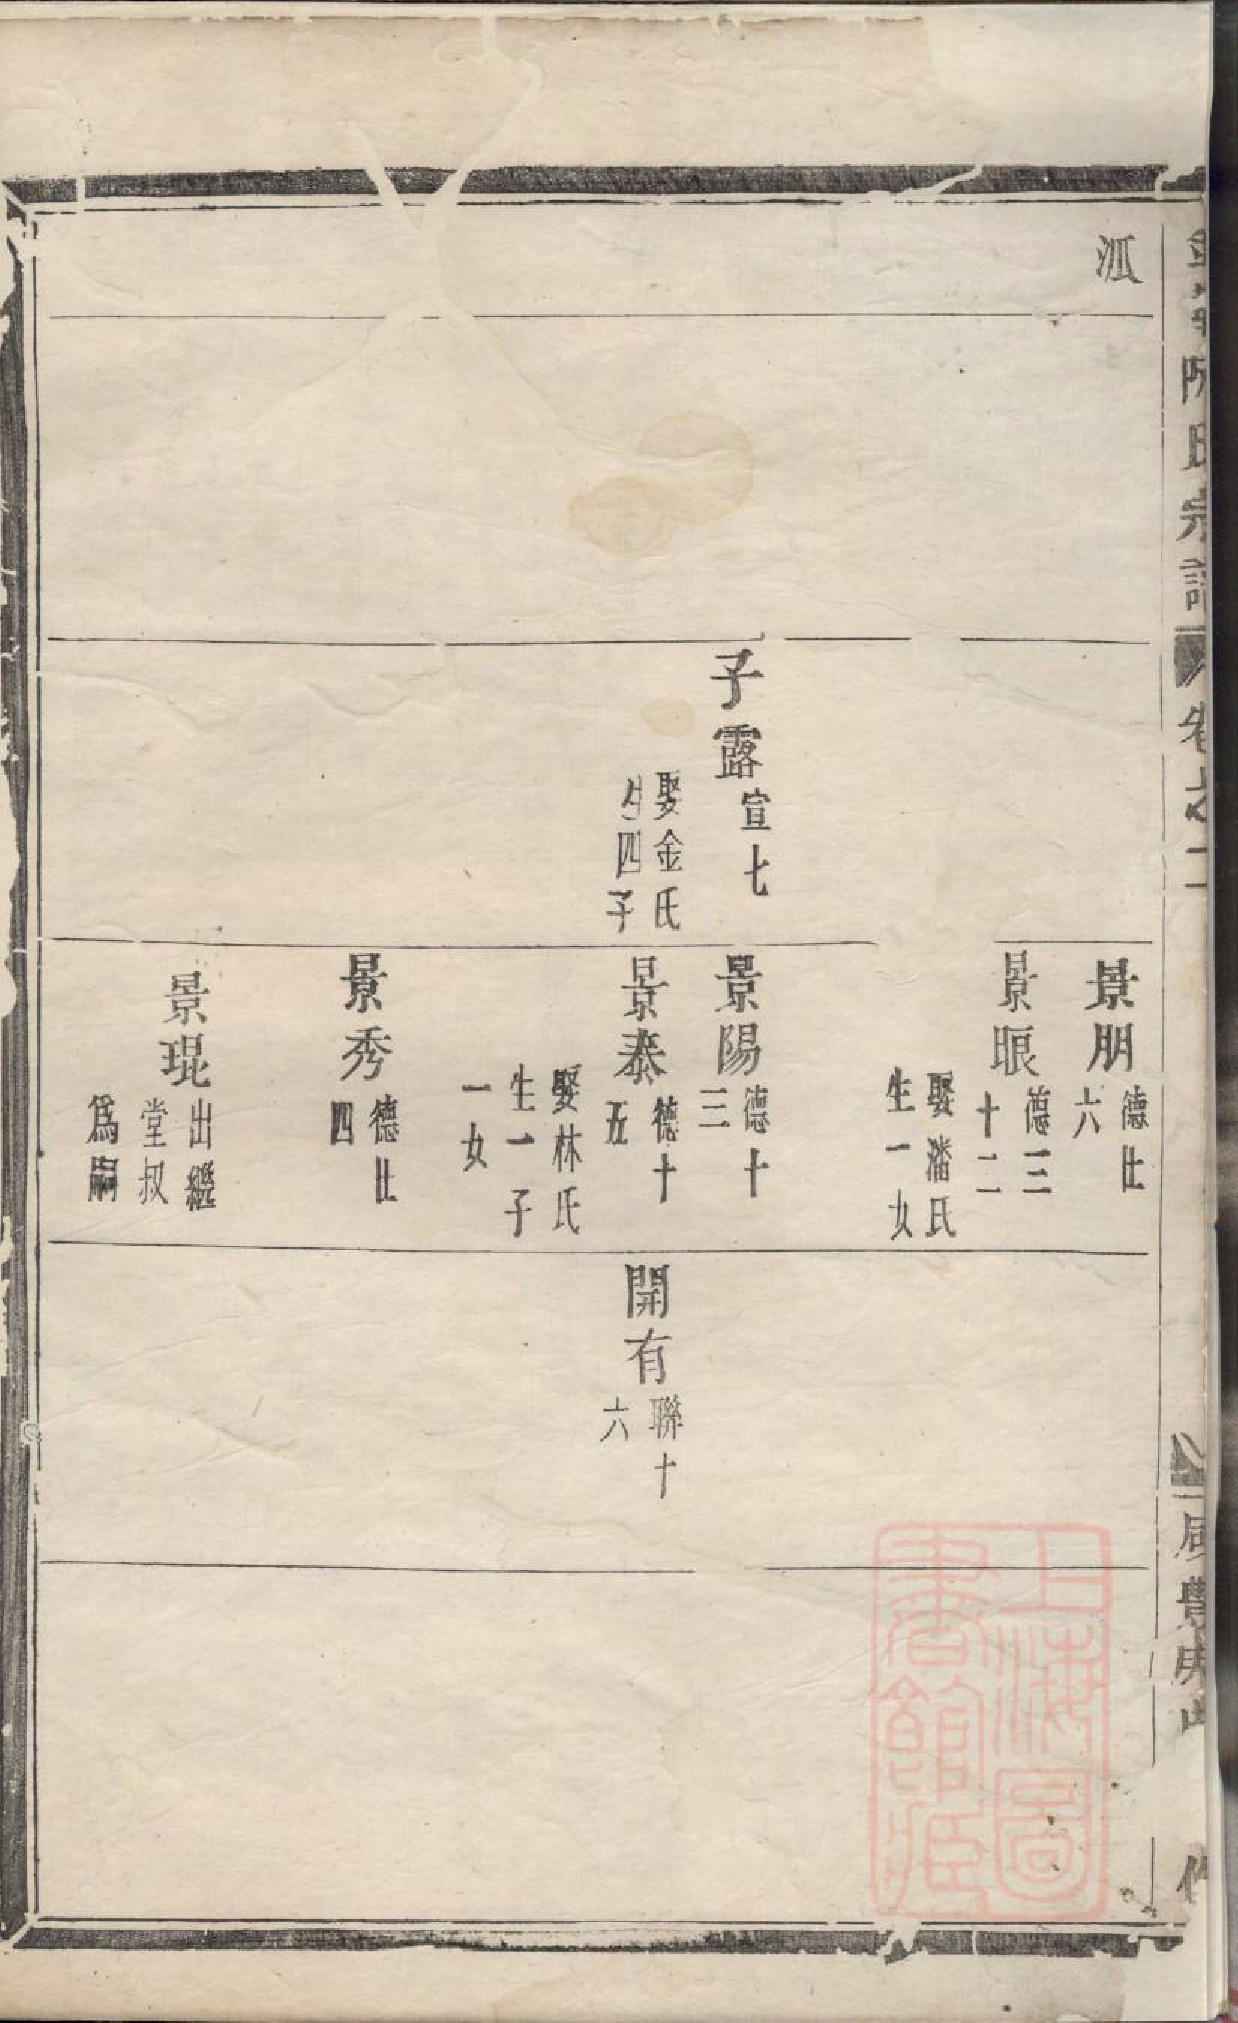 陳氏宗譜
卷之二
咸豐庚
派
子露宣七
娶金氏
生四子
景朋德廿
六
景眼德三
十二
娶潘氏
生一女
景陽德十
三
景泰德十
五
娶林氏
生一子
一女
景秀德廿
四
景琨出繼
堂叔
爲嗣
開有聯十
六
上海圖
書館藏